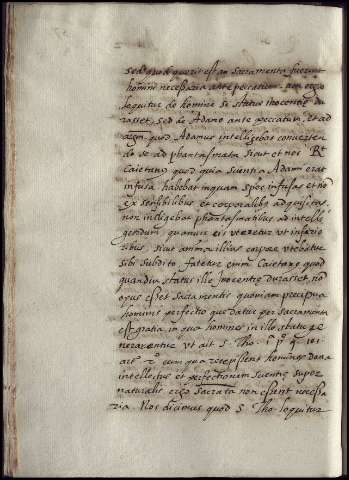 sed quod querit est an sacramenta fuerint
homini necessaria ante peccatum non ergo
loquitur de homine si status inocentie du
rasset, sed de Adamo ante peccatum, et ad
argm quod Adamus intelligebat converten
do se ad phantasmata sicut et nos Rt
Caietanus quod quia scientia Adami erat
infusa habebat inquam spēs infusas et nō
ex sensibilibus et corporalibus adquisitas,
non indigebat phantasmatibus ad intelli
gendum quamvis eis uteretur ut inferio
ribus, sicut anima illius corpore utebatur
sibi subdito, fatetur enim Caietanus quod
quandiu status ille inocentie durasset, nō
opus esset sacramentis quoniam precipua
hominis perfectio que datur per sacramenta
est gratia, in qua homines in illo statu ge
nerarentur ut ait S. Tho. 1 p. q. 101
art. cum qua recepissent homines dona
intellectus et perfectionem scientie super
naturalis ergo sacrata non essent necessa
ria. Nos dicimus quod S. Tho. loquitur